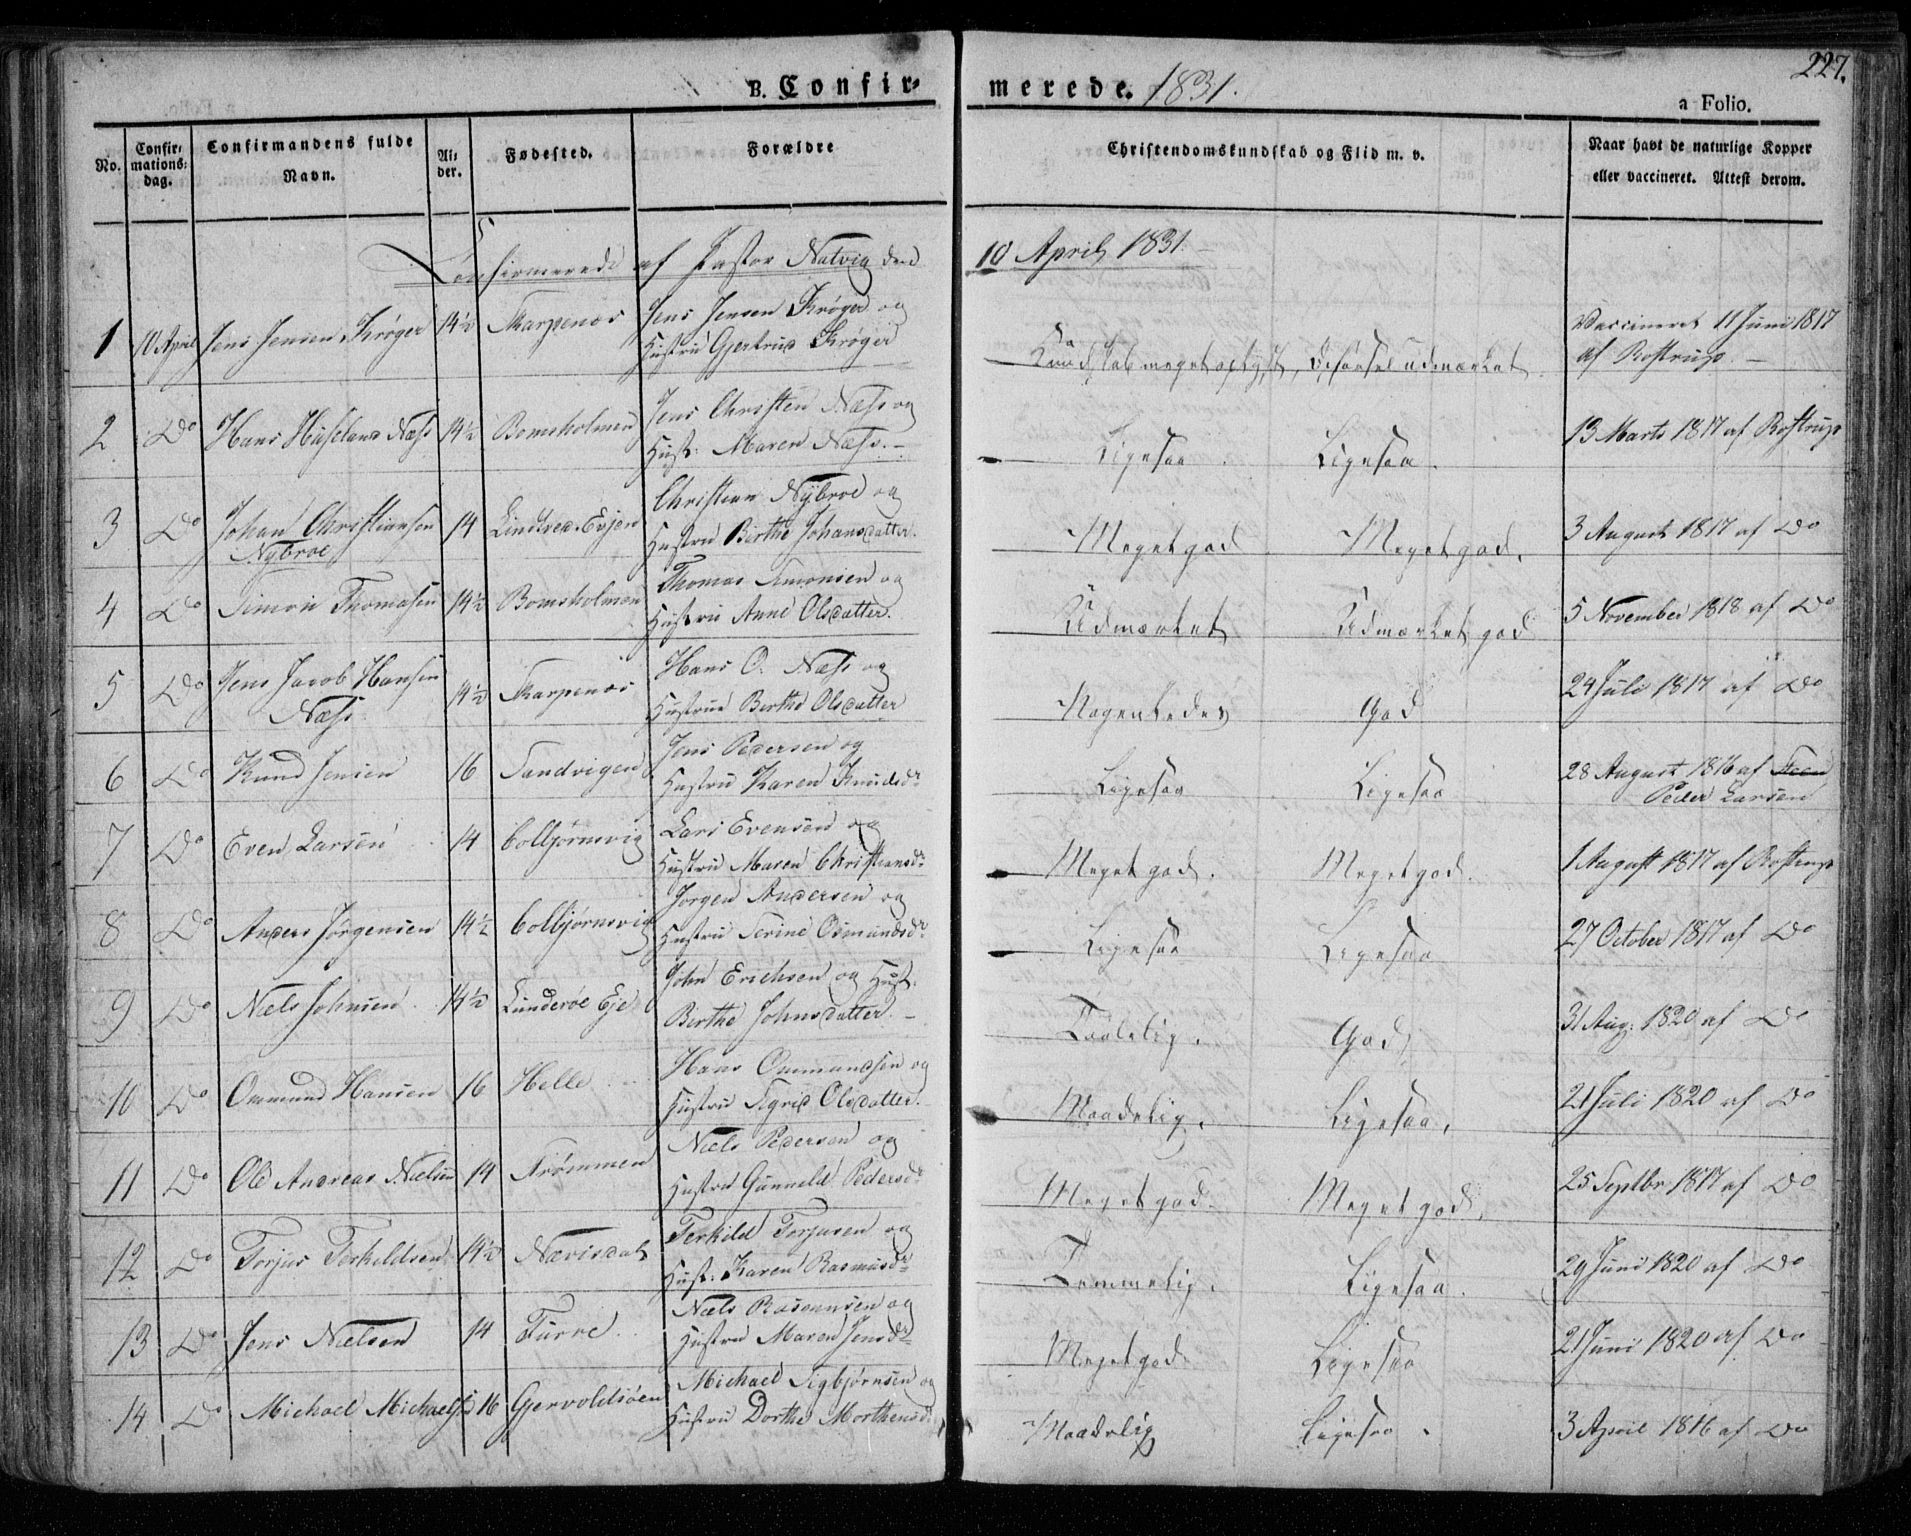 227.
B. Confir- merede. 1831.
a Folio.
No. Confir: mations: dag. Confirmandens fulde Navn. Al: der. Fødested. Forældre Christendomskundskab og Flid m. v. Naar havt de naturlige Kopper eller vaccineret. Attest derom.
Confirmerede af Pastor Natvig den 10 April 1831.
1 10 April Jens Jensen Krøger 14½ Skarpenes Jens Jensen Krøger og
Hustru Gjertrud Krøger Kundskab meget oplyst, Opførsel udmærket. Vaccineret 11 Juni 1817
af Rostrup.
2 Do Hans Huseland Næss 14½ Bomsholmen Jens Christen Næss og
Hust: Maren Næss. Ligesaa. Ligesaa. 13 Marts 1817 af Rostrup
3 Do Johan Christiansen 14 Lindtved Eejen Christian Nybroe og
Nybroe Hustru Birthe Johansdatter. Meget god Meget god. 3 August 1817 af Do
4 Do Simon Thomasen 14½ Bomsholmen Thomas Simonsen og
Hustru Anne Olsdatter. Udmærket Udmærket god 5 November 1818 af Do
5 Do Jens Jacob Hansen 14½ Skarpenes Hans O. Næss og
Næss Hustrue Birthe Olsdatter Nogenledes God 24 Juli 1817 af Do
6 Do Knud Jensen 16 Sandvigen Jens Pedersen og
Hustru Karen Knudsdr Ligesaa Ligesaa 28 August 1816 af
Peder Larsen
7 Do Even Larsen 14 Colbjørnsvig Lars Evensen og
Hustru Maren Christiansdr Meget god. Meget god. 1 August 1817 af Rostrup
8 Do Anders Jørgensen 14½ Colbjørnsvig Jørgen Andersen og
Hustru Serine Osmundsdr Ligesaa Ligesaa 27 October 1817 af Do
9 Do Niels Johnsen 14½ Lunderøe Eje John Erichsen og Hust.
Berthe Johnsdatter. Taalelig. God 31 Aug: 1820 af Do
10 Do Ommund Hansen 16 Helle Hans Ommundsen og
Hustru Sigrid Olsdatter. Maadelig. Ligesaa. 21 Juli 1820 af Do
11 Do Ole Andreas Nielsen 14 Strømmen Niels Pedersen og
Hustru Gunneld Pedersdr Meget god. Meget god. 25 Septbr 1817 af Do
12 Do Torjus Terkildsen 14½ Nævisdal Terkild Torjusen og
Hust: Karen Rasmusdr Temmelig. Ligesaa. 29 Juni 1820 af Do
13 Do Jens Nielsen 14 Furre Niels Rasmusen og
Hustru Maren Jensdr Meget god. Ligesaa 21 Juni 1820 af Do
14 Do Michael Michaels 16 Gjervoldsøen Michael Sigbjørnsen og
Hustru Dorthe Morthensd. Maadelig Ligesaa. 3 April 1816 af Do